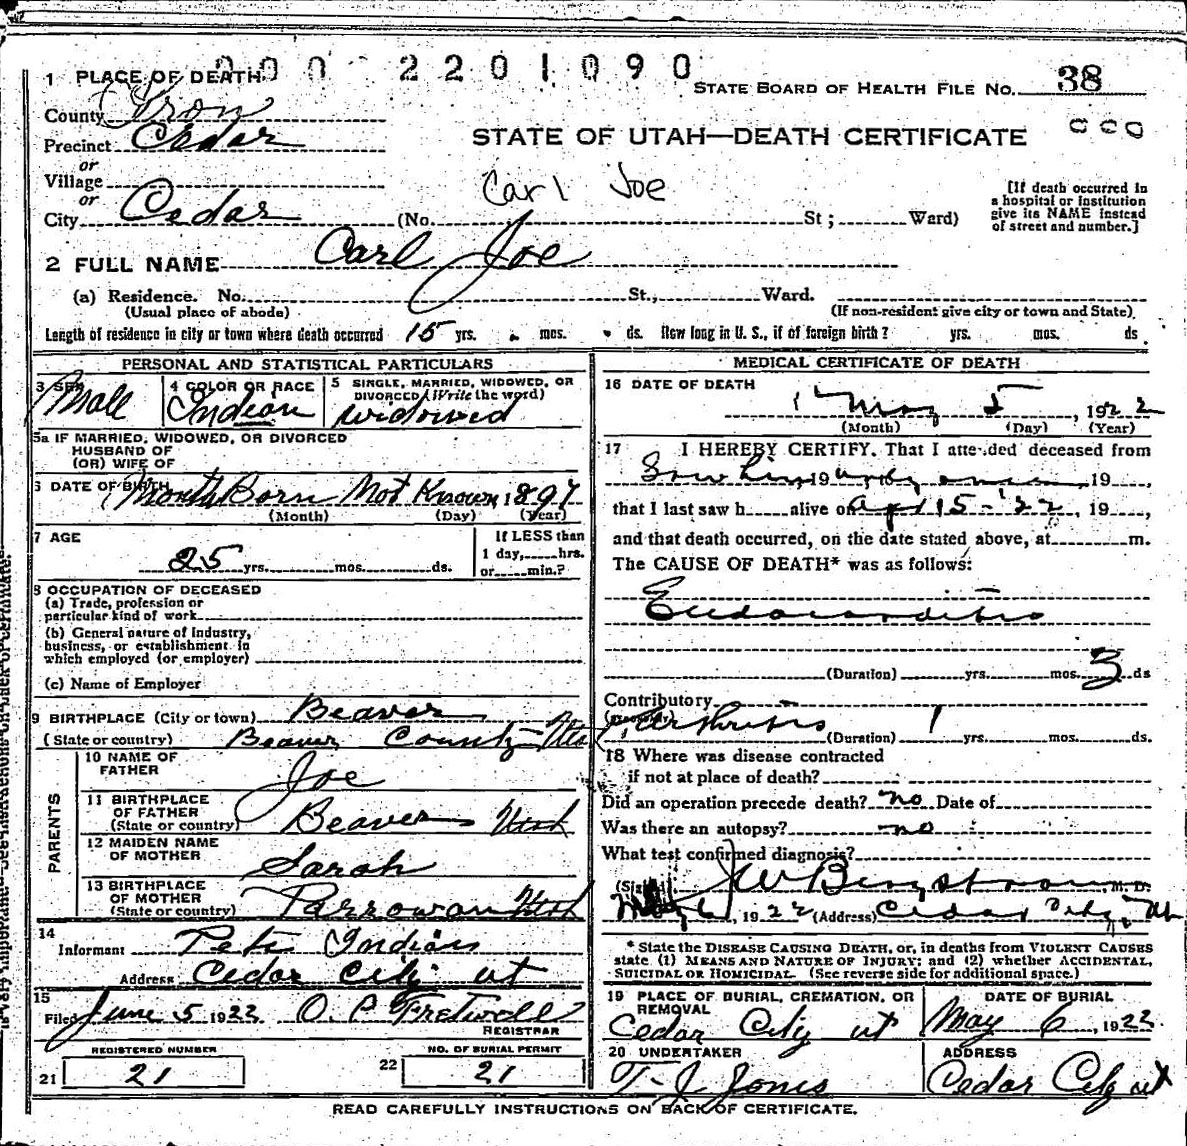 000 2201090
1 PLACE OF DEATH
STATE BOARD OF HEALTH FILE NO. 38
County Iron
STATE OF UTAH—DEATH CERTIFICATE
Precinct Cedar
or
Village
Carl Joe
or
City Cedar (No. St; Ward)
[If death occurred in
a hospital or institution
give its NAME instead
of street and number.]
2 FULL NAME Carl Joe
(a) Residence. No. St., Ward.
(Usual place of abode) (If non-resident give city or town and State)
Length of residence in city or town where death occurred 15 yrs. mos. ds. How long in U. S., if of foreign birth? yrs. mos. ds.
PERSONAL AND STATISTICAL PARTICULARS
3 SEX Male
4 COLOR OR RACE Indian
5 SINGLE, MARRIED, WIDOWED, OR
DIVORCED (Write the word)
widowed
5a IF MARRIED, WIDOWED, OR DIVORCED
HUSBAND OF
(OR) WIFE OF
6 DATE OF BIRTH Month Born Not Known 1897
(Month) (Day) (Year)
7 AGE
25 yrs. mos. ds.
If LESS than
1 day, hrs.
or min.?
8 OCCUPATION OF DECEASED
(a) Trade, profession or
particular kind of work
(b) General nature of industry,
business, or establishment in
which employed (or employer)
(c) Name of Employer
9 BIRTHPLACE (City or town) Beaver
(State or country) Beaver County Utah
PARENTS
10 NAME OF
FATHER Joe
11 BIRTHPLACE
OF FATHER
(State or country) Beaver Utah
12 MAIDEN NAME
OF MOTHER Sarah
13 BIRTHPLACE
OF MOTHER
(State or country) Parrowan Utah
14
Informant Pete Indian
Address Cedar City ut
15
Filed June 5 1922 O. P. Fretwell
REGISTRAR
REGISTERED NUMBER
21 21
NO. OF BURIAL PERMIT
22 21
MEDICAL CERTIFICATE OF DEATH
16 DATE OF DEATH
May 5, 1922
(Month) (Day) (Year)
17 I HEREBY CERTIFY, That I attended deceased from
19 19
that I last saw h alive on apr 15-'22, 19
and that death occurred, on the date stated above, at m.
The CAUSE OF DEATH* was as follows:
Endocarditis
(Duration) yrs. mos. 3 ds
Contributory
Arthritis
(Duration) 1 yrs. mos. ds.
18 Where was disease contracted
if not at place of death?
Did an operation precede death? no Date of
Was there an autopsy? no
What test confirmed diagnosis?
(Signed) J W Bergstrom M. D.
May 6, 1922 (Address) Cedar City, Ut
* State the DISEASE CAUSING DEATH, or, in deaths from VIOLENT CAUSES
state (1) MEANS AND NATURE OF INJURY; and (2) whether ACCIDENTAL,
SUICIDAL OR HOMICIDAL. (See reverse side for additional space.)
19 PLACE OF BURIAL, CREMATION, OR
REMOVAL
Cedar City ut
DATE OF BURIAL
May 6, 1922
20 UNDERTAKER
T. J. Jones
ADDRESS
Cedar City ut
READ CAREFULLY INSTRUCTIONS ON BACK OF CERTIFICATE.